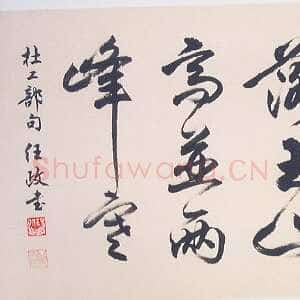 落玉山
高並兩
峰寒
杜工部句 任政書
Shufawang.CN